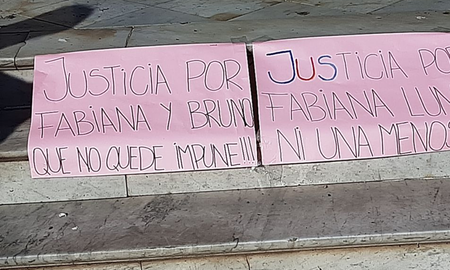 JUSTICIA POR
FABIANA Y BRUNO
QUE NO QUEDE IMPUNE!!!
JUSTICIA PO
FABIANA LUN
NI UNA MENOS